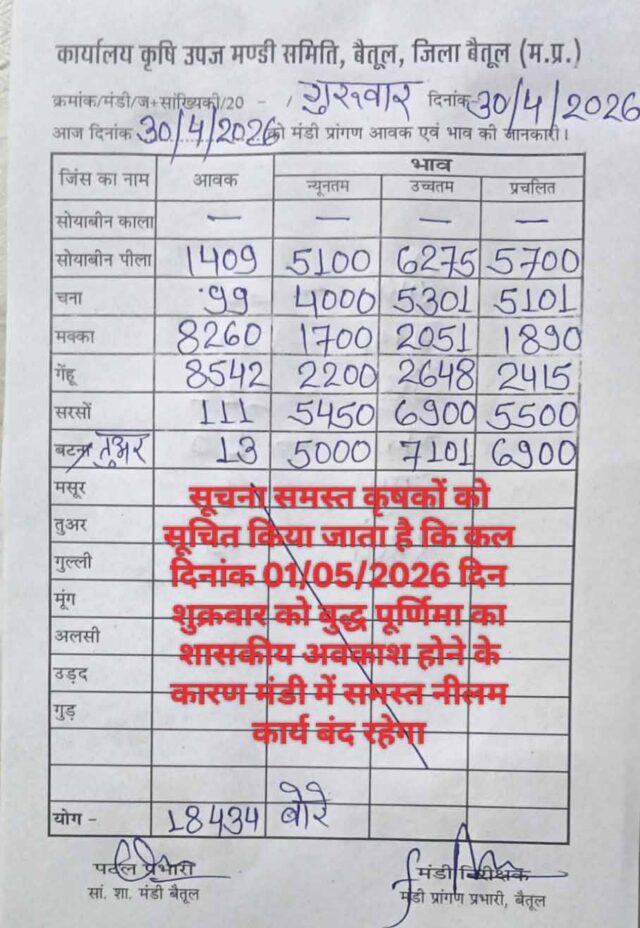 कार्यालय कृषि उपज मण्डी समिति, बैतूल, जिला बैतूल (म.प्र.)
क्रमांक/मंडी/ज+सांख्यिकी/20 - / गुरुवार दिनांक-30/4/2026
आज दिनांक 30/4/2026 को मंडी प्रांगण आवक एवं भाव की जानकारी।
जिंस का नाम आवक भाव
न्यूनतम उच्चतम प्रचलित
सोयाबीन काला — — — —
सोयाबीन पीला 1409 5100 6275 5700
चना 99 4000 5301 5101
मक्का 8260 1700 2051 1890
गेंहू 8542 2200 2648 2415
सरसों 111 5450 6900 5500
बटना तुअर 13 5000 7101 6900
मसूर
तुअर
गुल्ली
मूंग
अलसी
उड़द
गुड़
सूचना समस्त कृषकों को
सूचित किया जाता है कि कल
दिनांक 01/05/2026 दिन
शुक्रवार को बुद्ध पूर्णिमा का
शासकीय अवकाश होने के
कारण मंडी में समस्त नीलम
कार्य बंद रहेगा
योग - 18434 बोरे
प्रभारी
सां. शा. मंडी बैतूल
मंडी निरीक्षक
मंडी प्रांगण प्रभारी, बैतूल